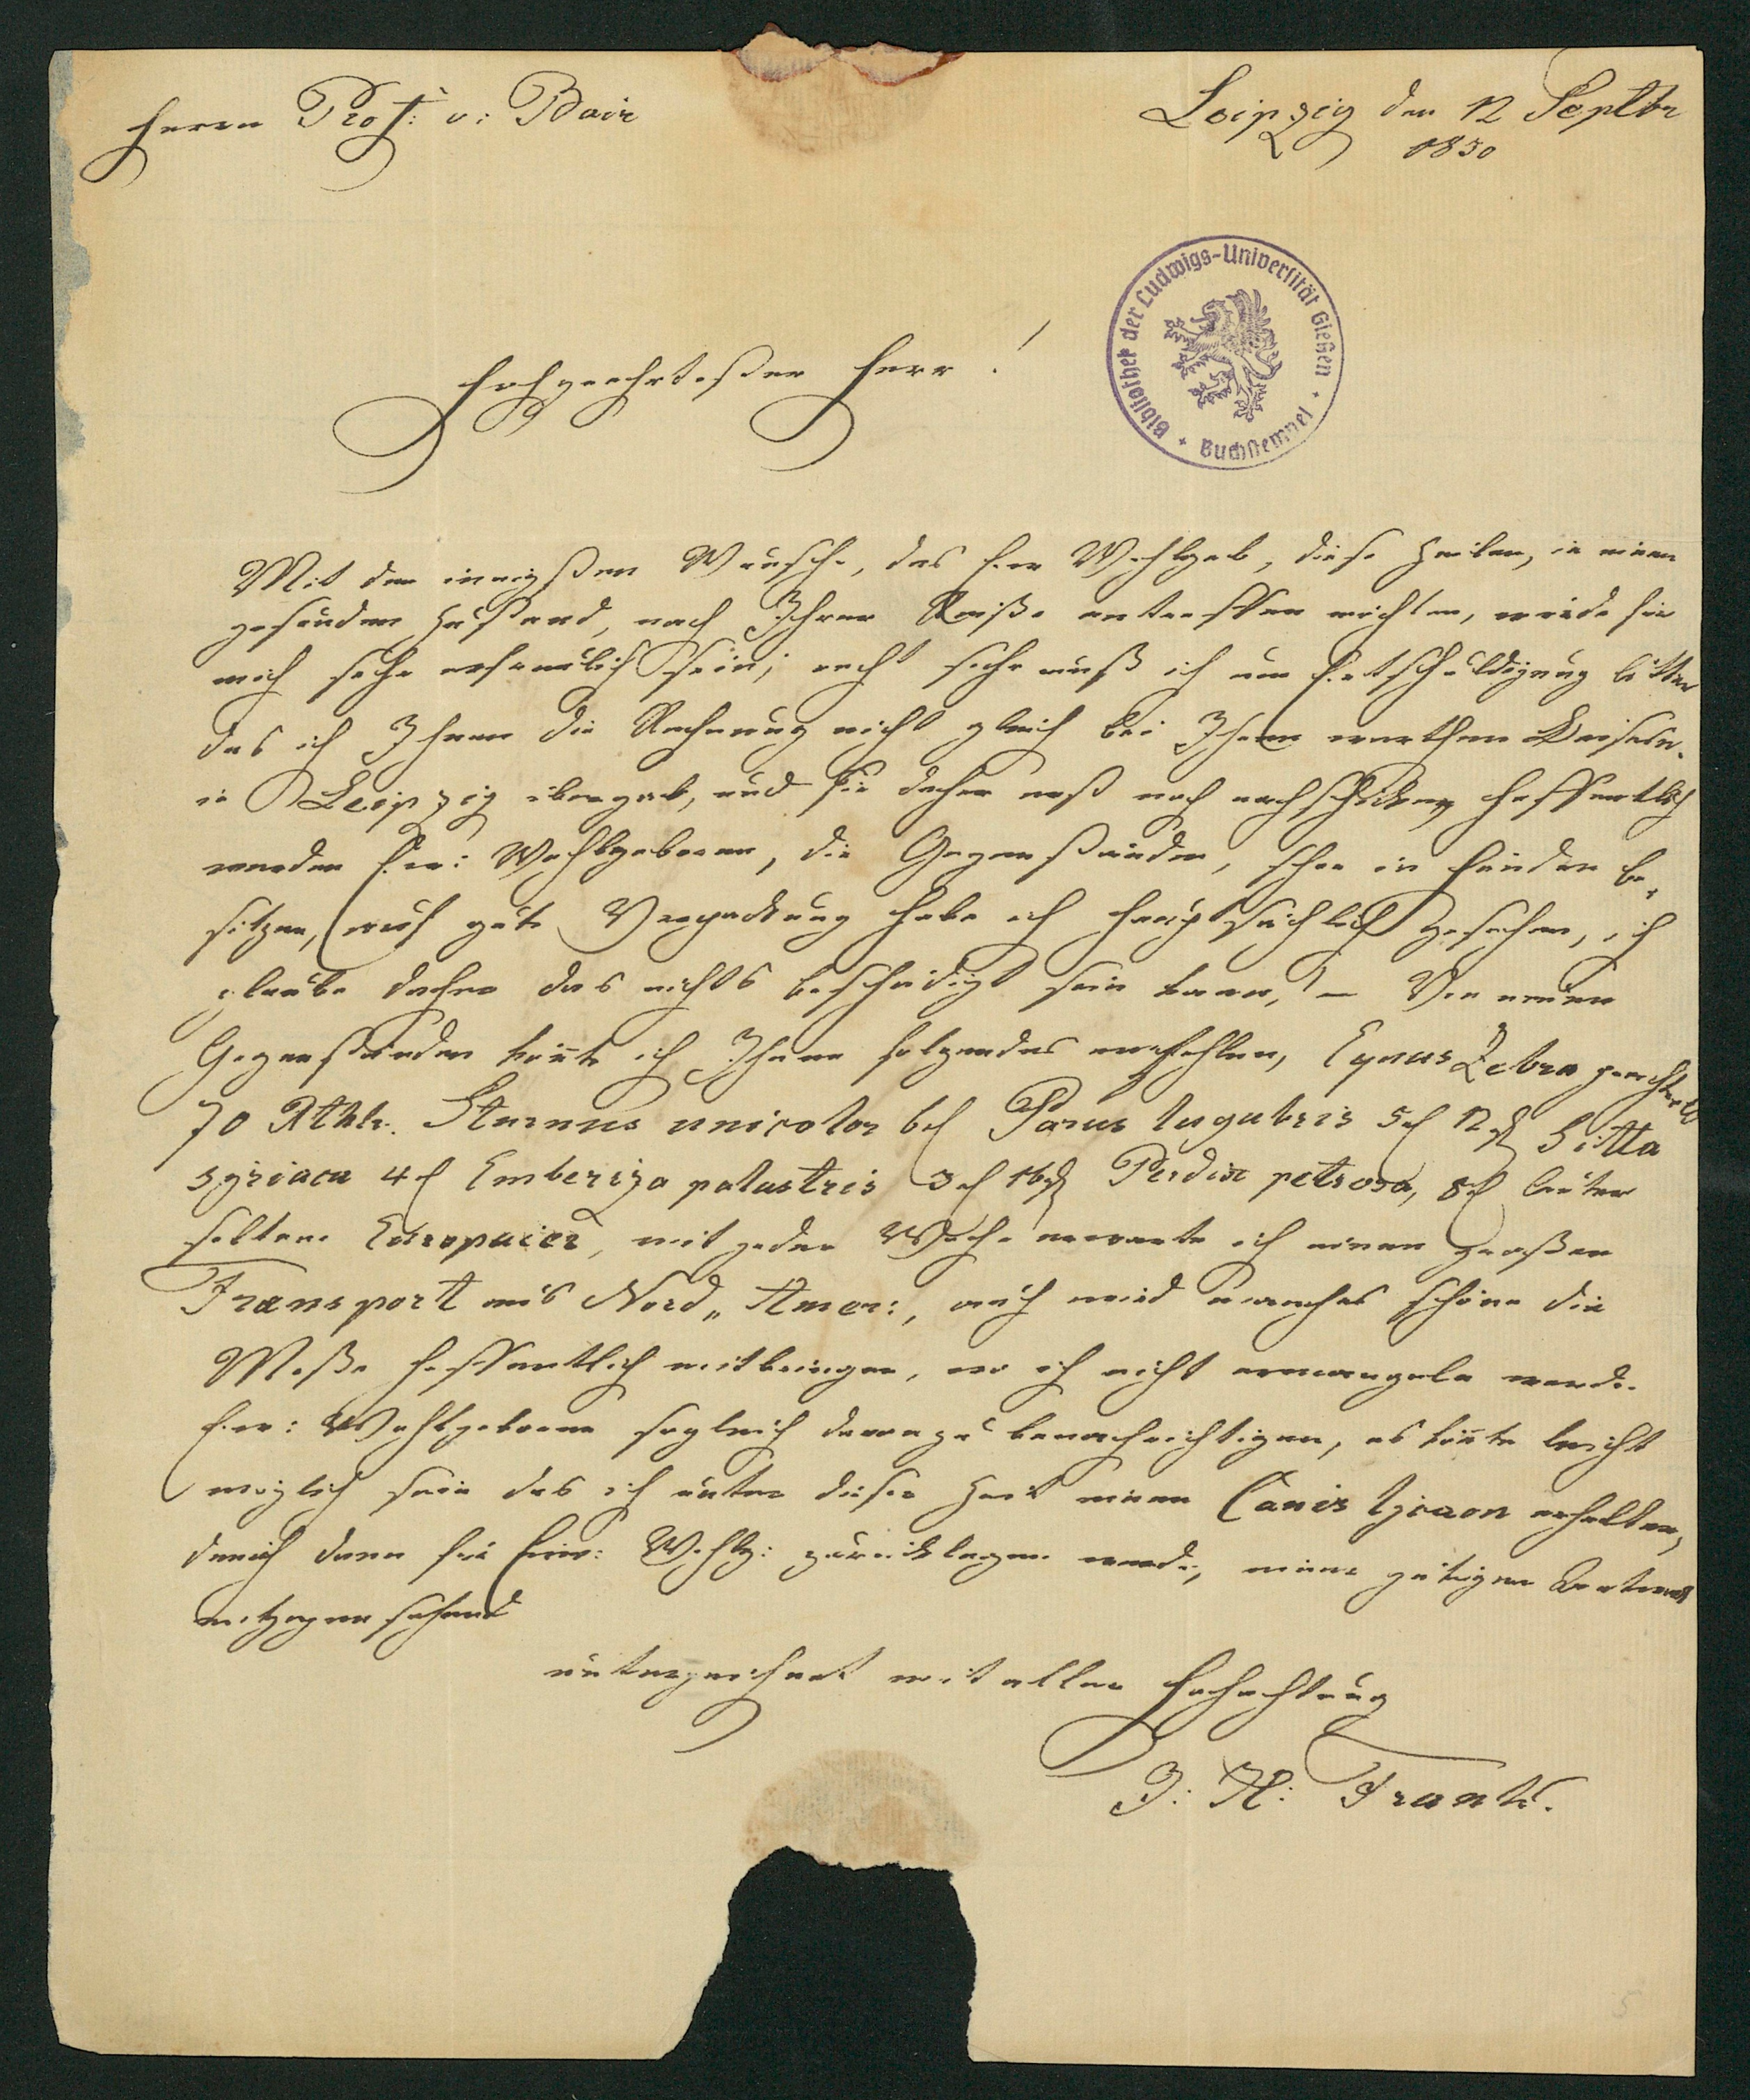 Herrn Prof: v: Bair
Leipzig den 12 Septbr
1830
Bibliothek der Ludwigs-Universität Gießen
Buchstempel
Hochgeehrtester Herr!
Mit den innigsten Wunsche, das Ew Wohlgeb, diese Zeilen, in einen
gesunden Zustand, nach Ihrer Reiße antreffen möchten, würde für
mich sehr erfreulich sein; recht sehr muß ich um Entschuldigung bitten
das ich Ihnen die Rechnung nicht gleich bei Ihren werthen Daisein
in Leipzig übergab, und sie daher erst noch nachschicke, hoffentlich
werden Ew: Wohlgeboren, die Gegenstände, schon in Händen be-
sitzen, auf gute Verpackung habe ich hauptsächlich gesehen, ich
glaube daher das nichts beschädigt sein kann, – Von neuen
Gegenständen könte ich Ihnen folgendes empfehlen, Equus Zebra
70 Rthlr. Sturnus unicolor 6 Parus lugubris 5 12 Sitta
syriaca 4 Emberiza palustris 3 16 Perdix petrosa, 8 lauter
seltene Europaier, mit jeder Woche erwarte ich einen großen
Transport aus Nord„ Amer:, auch wird manches schöne die
Meße hoffentlich mitbringen, wo ich nicht ermangeln werde
Ew: Wohlgeboren sogleich davon zu benachrichtigen, es könte leicht
möglich sein das ich unter dieser Zeit einen Canis lycaon erhalten,
denich dann für Euw: Wohlg: zurücklegen werde, einer gütigen Antwort
entgegen sehend
unterzeichnet mit aller Hochachtung
J: H: Frank.
5